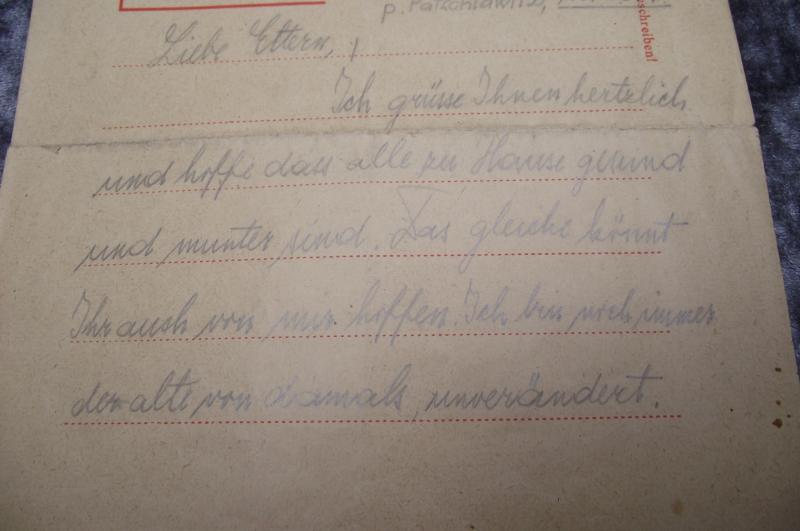 p. Patschkowitz,
eschreiben!
Liebe Eltern,
Ich grüsse Ihnen hertzlich
und hoffe dass alle zu Hause gesund
und munter sind. Das gleiche könnt
Ihr auch von mir hoffen. Ich bin noch immer
der alte von damals, unverändert.